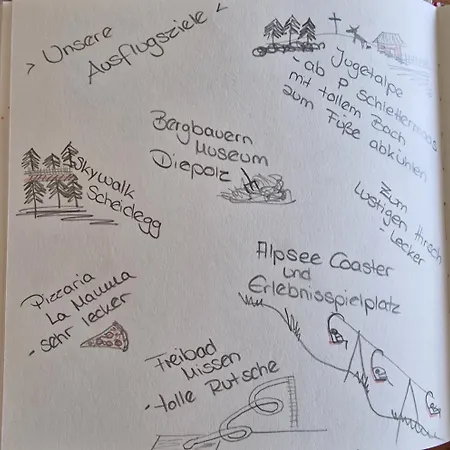 > Unsere
Ausflugsziele <
Jugetalpe
- ab P Schlettermoos
mit tollem Bach
zum Füße abkühlen
Bergbauern
Museum
Diepolz
Skywalk
Scheidegg
Zum
lustigen Hirsch
- lecker
Alpsee Coaster
und
Erlebnisspielplatz
Pizzaria
La Mamma
- sehr lecker
Freibad
Missen
- tolle Rutsche